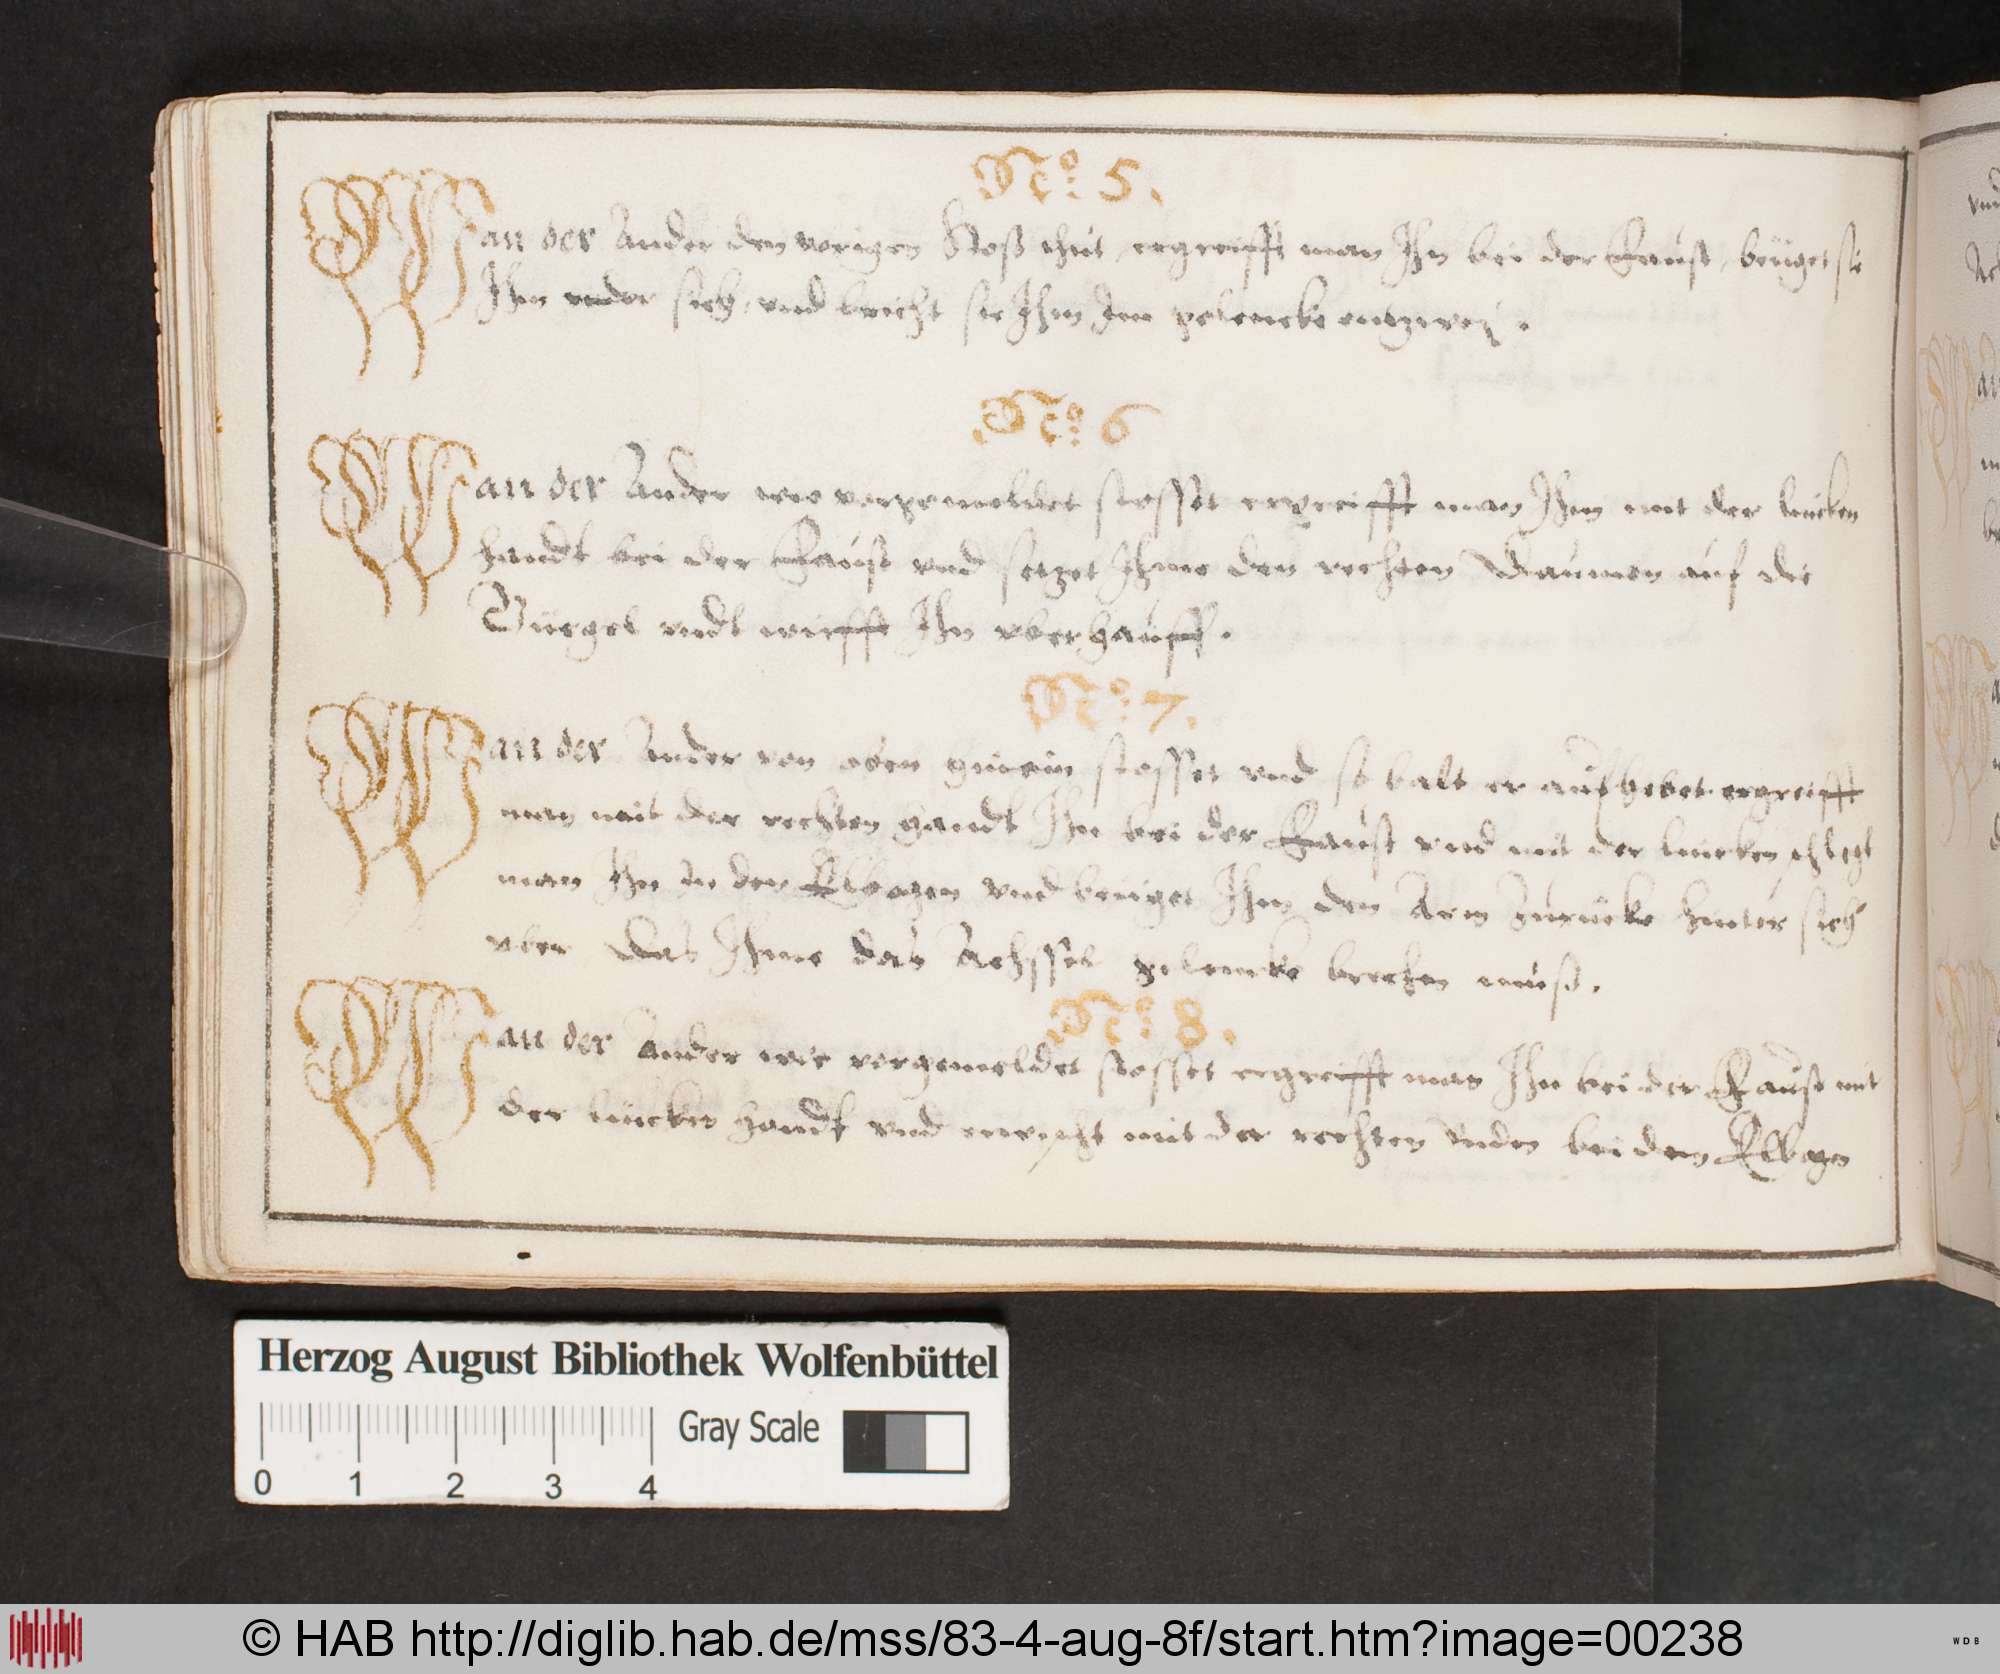 No: 5.
Wan der Ander den vorigen Stoß thut, ergreifft man Ihn bei der Faust, beüget sie
Ihm under sich, vnd bricht sie Ihm Im gelencke entzwey.
No: 6
Wan der Ander wie vorgemeldet stosset ergreifft man Ihm mit der lincken
handt bei der Faust vnd setzet Ihme den rechten Daumen auf die
Gürgel vndt wirfft Ihn vberhauff.
No: 7.
Wan der Ander von oben hinein stosset vnd so balt er aufhebet ergreifft
man mit der rechten handt Ihn bei der Faust vnd mit der lincken schlegt
man Ihn in den Elbogen vnd beuget Ihm den Arm Zurücke hinter sich
vber Das Ihme das Achssel gelencke brechen muß.
No: 8.
Wan der Ander wie vorgemeldet stosset ergreifft man Ihn bei der Faust mit
der lincken handt vnd mit der rechten vnden bei dem Elbogen
Herzog August Bibliothek Wolfenbüttel
Gray Scale
0 1 2 3 4
© HAB http://diglib.hab.de/mss/83-4-aug-8f/start.htm?image=00238
WDB